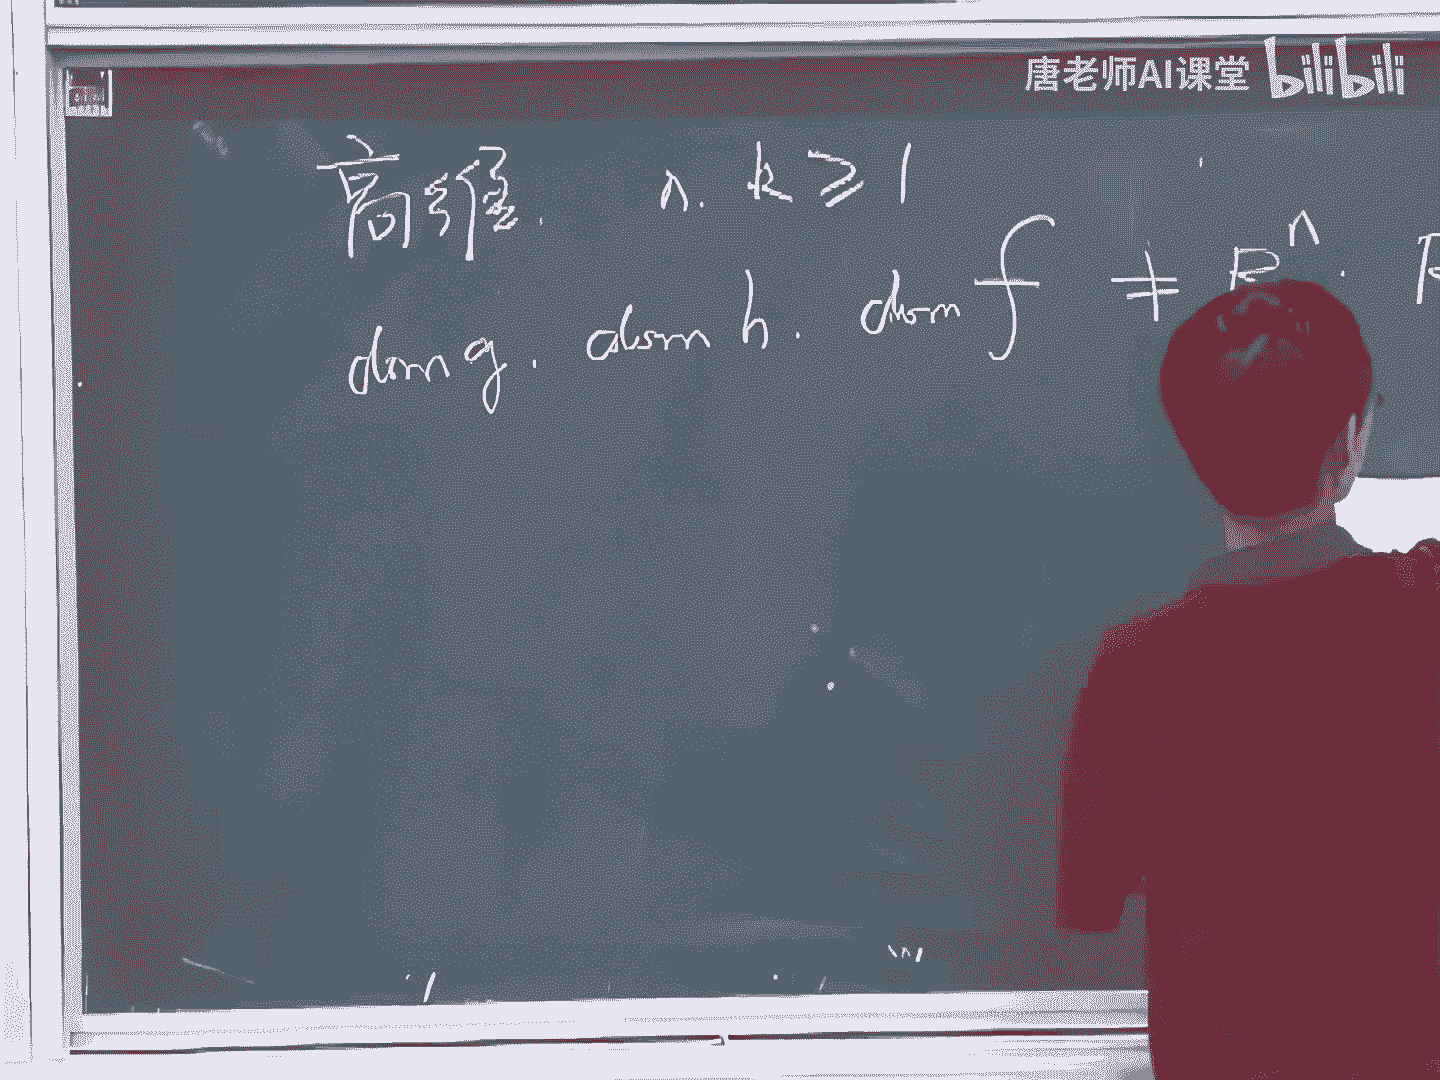 唐老师AI课堂 bilibili
高维. n. k ≥ 1
dom g. dom h. dom f ≠ R^n.